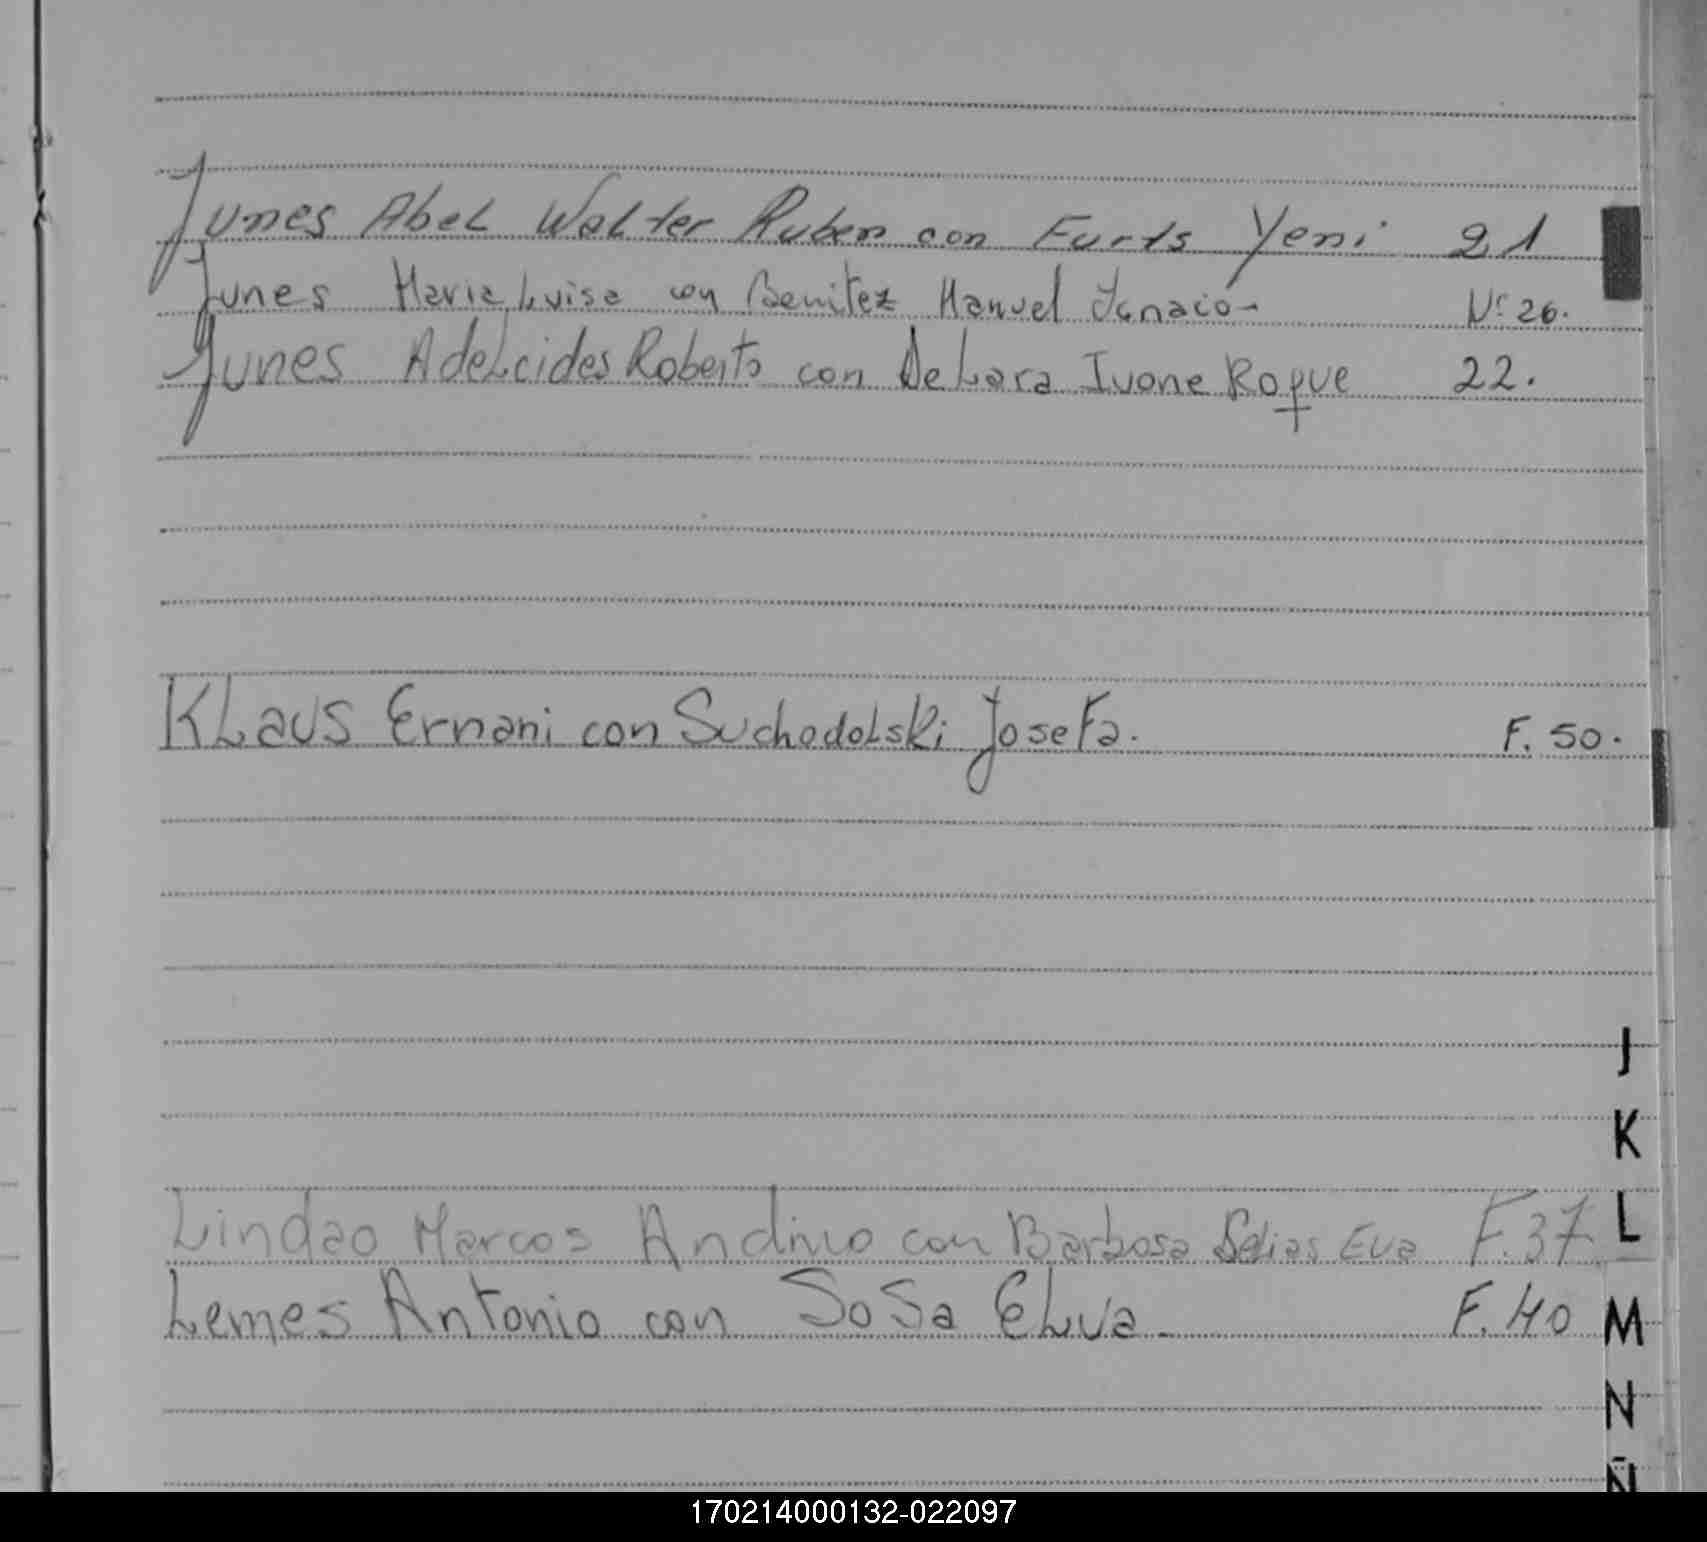 Junes Abel Walter Ruben con Furts Yeni 21
Junes Maria Luisa con Benitez Manuel Ignacio- Nº 26.
Junes Adelcides Roberto con De Lara Ivone Roque 22.
KLaus Ernani con Suchodolski Josefa. F. 50.
J
K
Lindao Marcos Andino con Barbosa Eva F. 37 L
Lemes Antonio con Sosa Elva - F. 40 M
N
Ñ
170214000132-022097